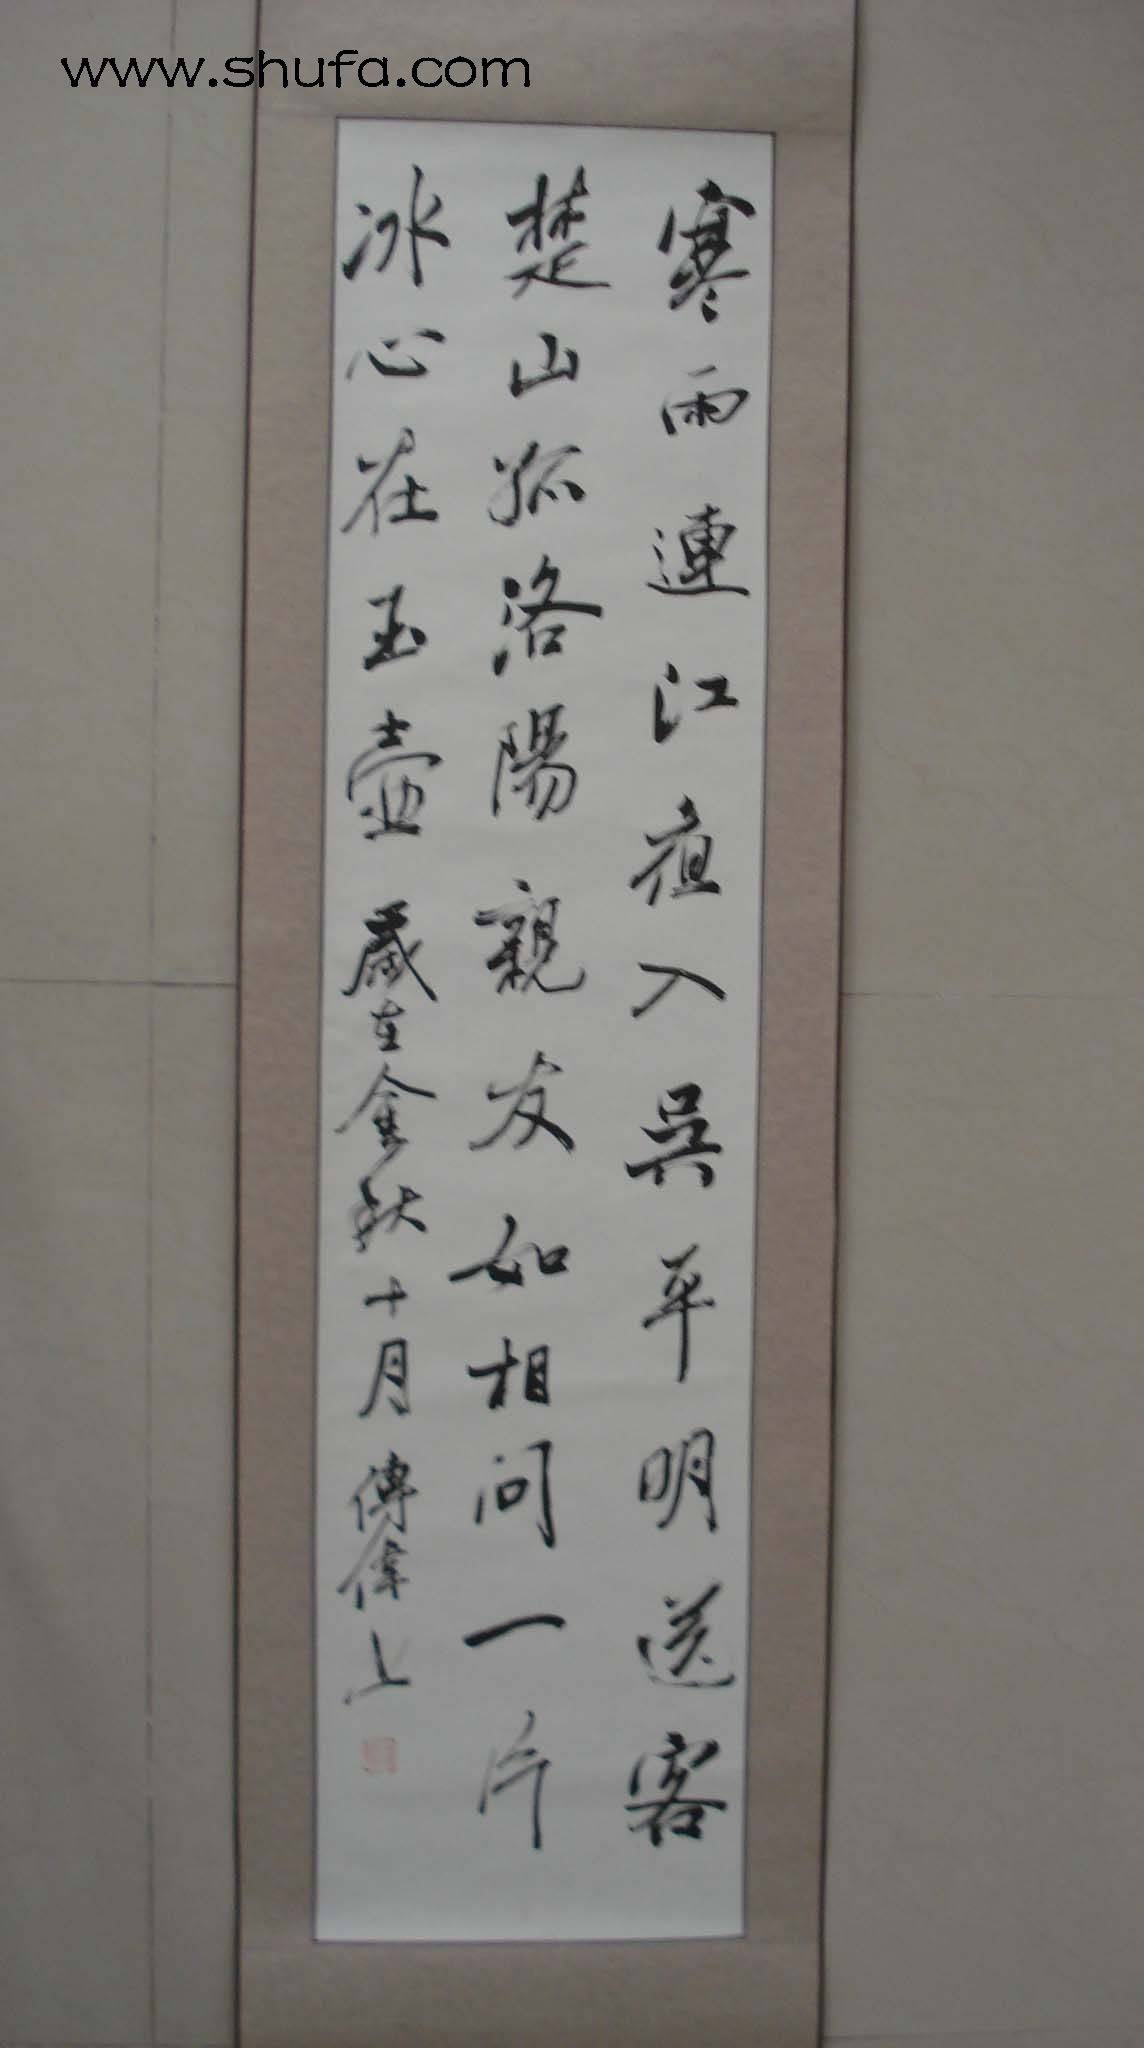 www.shufa.com
寒雨連江夜入吳平明送客
楚山孤洛陽親友如相问一片
冰心在玉壺歲在金秋十月傅偉上